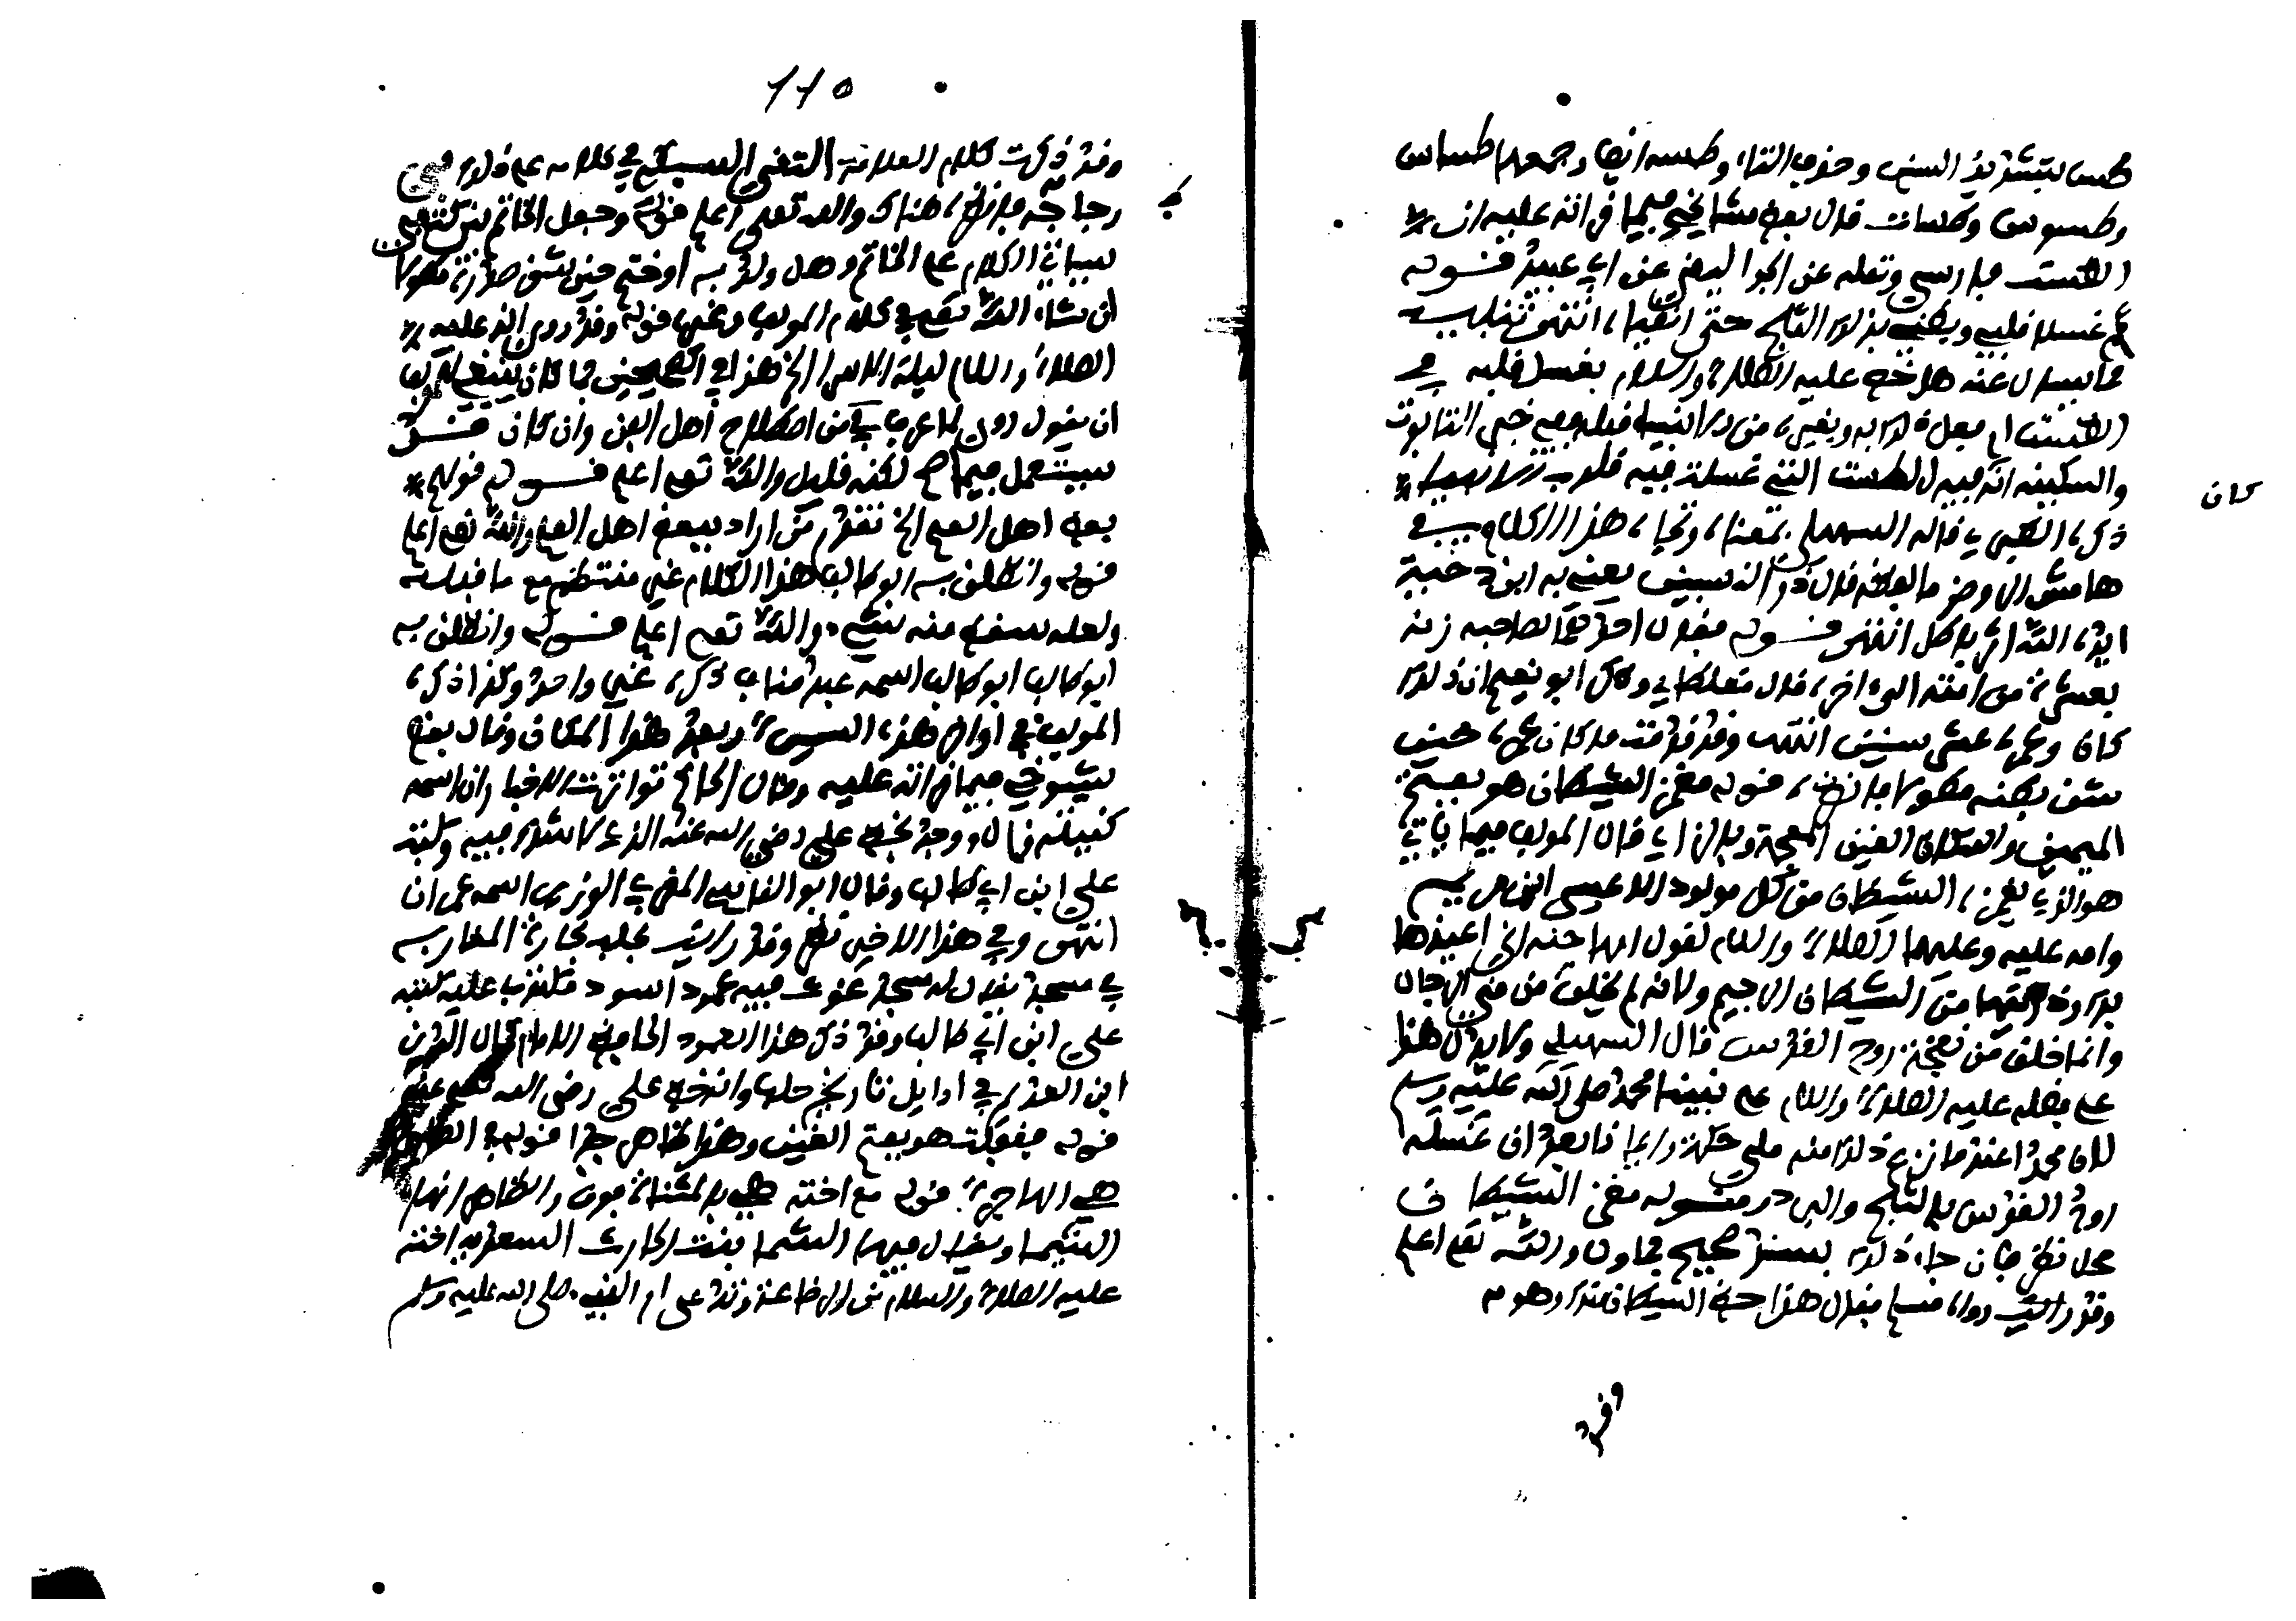 طس بتشديد السين وحذف التاء وطسه ايضا وجمعها طساس
وطسوس وطسات قال بعض مشايخي فيما قراته عليه ان
الطست فارسي ونقله عن الجواليقي عن ابي عبيد قوله
ثم غسلا قلبي وبطني بذلك الثلج حتى انقياه انتهى تنبيه
مما يسال عنه هل خص عليه الصلاة والسلام بغسل قلبه في
الطست ام فعل ذلك به وبغيره من الانبياء قبله ففي خبر التابوت
والسكينة انه فيه الطست التي غسلت فيه قلوب الانبياء
كان
ذكره الطبري قاله السهيلي بمعناه وتجاه هذا الكلام في
هامش الروض ما لفظه قال ذو النسبين يعني به ابن دحية
ايده الله اثر باطل انتهى قوله فقال احدهما لصاحبه زنه
بعشرة من امته الى اخره قال مغلطاي وذكر ابو نعيم ان ذلك
كان وعمره عشر سنين انتهى وقد قدمت ما كان عمره حين
شق بطنه مطولا فانظره قوله مغمز الشيطان هو بفتح
الميمين واسكان الغين المعجمة وبالزاي قال المولف فيما ياتي
هو الذي يغمزه الشيطان من كل مولود الا عيسى ابن مريم
وامه عليه وعليهما الصلاة والسلام لقول امها حنة اني اعيذها
بك وذريتها من الشيطان الرجيم ولانه لم يخلق من مني الرجال
وانما خلق من نفخة روح القدس قال السهيلي ولا يدل هذا
على فضله عليه الصلاة والسلام على نبينا محمد صلى الله عليه وسلم
لان محمدا عندما نزع ذلك منه ملي حكمة وايمانا بعد ان غسله
روح القدس بالثلج والبرد قوله مغمز الشيطان
محل نظر فان جاء ذلك بسند صحيح فماول والله تعلى اعلم
وقد رايت رواه مسلم فقال هذا حظ الشيطان منك وهو
وقد
١١٥
وقد ذكرت كلام العلامة التقي السبكي في كلامه على ذلك في
رجاجه فانظره هناك والله تعلى اعلم قوله وجعل الخاتم بين كتفي
سياتي الكلام على الخاتم وهل ولد به او ختم حين شق صدره مطولا
ان شاء الله تعلى في كلام المولف وغيره قوله وقد روي انه عليه
الصلاة والسلام ليلة الاسرا الخ هذا في الصحيحين فما كان ينبغي له
ان يقول روي لما عرف من اصطلاح اهل الفن وان كان قد
يستعمل فيما صح لكنه قليل والله تعلى اعلم قوله قولهم
بعض اهل العلم الخ تقدم من اراد ببعض اهل العلم والله تعلى اعلم
قوله وانطلق به ابو طالب هذا الكلام غير منتظم مع ما قبله
ولعله سقط منه شيء والله تعلى اعلم قوله وانطلق به
ابو طالب ابو طالب اسمه عبد مناف ذكره غير واحد وكذا ذكره
المولف في اوائل هذه السيرة وبعد هذا المكان وقال بعض
شيوخي فيما قراته عليه وقال الحاكم تواترت الاخبار ان اسمه
كنيته قال ووجد بخط علي رضي الله عنه الذي لا شك فيه وكتب
علي ابن ابي طالب وقال ابو القاسم المغربي الوزير اسمه عمران
انتهى وفي هذا الاخير نظر وقد رايت بحلب بحارة المغاربة
في مسجد يقال له مسجد غوث فيه عمود اسود مكتوب عليه كتبه
علي ابن ابي طالب وقد ذكر هذا العمود الحافظ الامام كمال الدين
ابن العديم في اوايل تاريخ حلب وانه خط علي رضي الله تعلى عنه
قوله ففقدت هو بفتح الفين وهذا ظاهر جدا قوله في الظهيرة
هي الهاجرة قوله مع اخته هي بالمثناة فوق والظاهر انها
الشيما ويقال فيها الشما بنت الحارث السعدية اخته
عليه الصلاة والسلام من الرضاعة وتدعى ام النبي صلى الله عليه وسلم